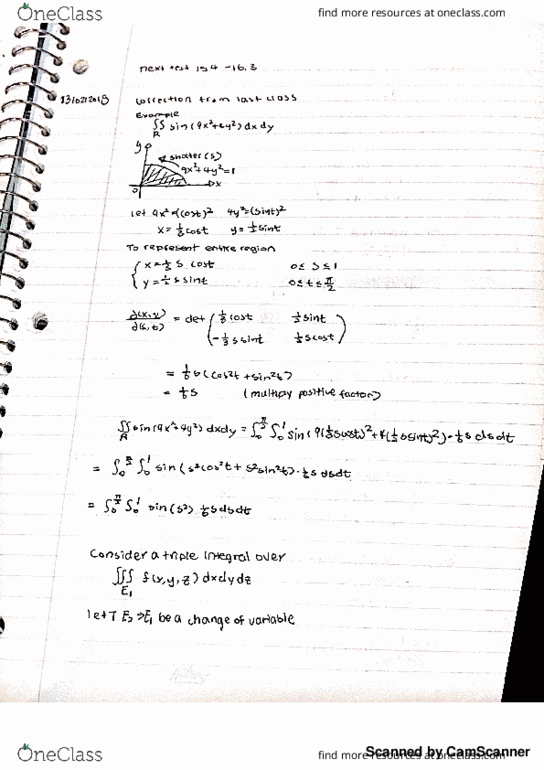 OneClass
find more resources at oneclass.com
next test 15.4 - 16.3
13/02/2018 correction from last class
Example
∬R sin(9x²+4y²) dx dy
y
shorter (s)
9x²+4y²=1
0 x
let 9x²=(cost)² 4y²=(sint)²
x=⅓cost y=½sint
To represent entire region
{ x=⅓ s cost 0≤s≤1
{ y=½ s sint 0≤t≤π/2
∂(x,y)/∂(s,t) = det ( ⅓cost ½sint
-⅓ s sint ½ s cost )
= ⅙ s (cos²t + sin²t)
= ⅙ s (multiply positive factor)
∬R sin(9x²+4y²) dxdy = ∫₀^π/2 ∫₀¹ sin(9(⅓scost)²+4(½ssint)²)·⅙s dsdt
= ∫₀^π/2 ∫₀¹ sin(s²cos²t + s²sin²t)·⅙s dsdt
= ∫₀^π/2 ∫₀¹ sin(s²) ⅙s dsdt
Consider a triple integral over
∭E₁ f(x,y,z) dxdydz
let T E₂→E₁ be a change of variable
Scanned by CamScanner
OneClass
find more resources at oneclass.com